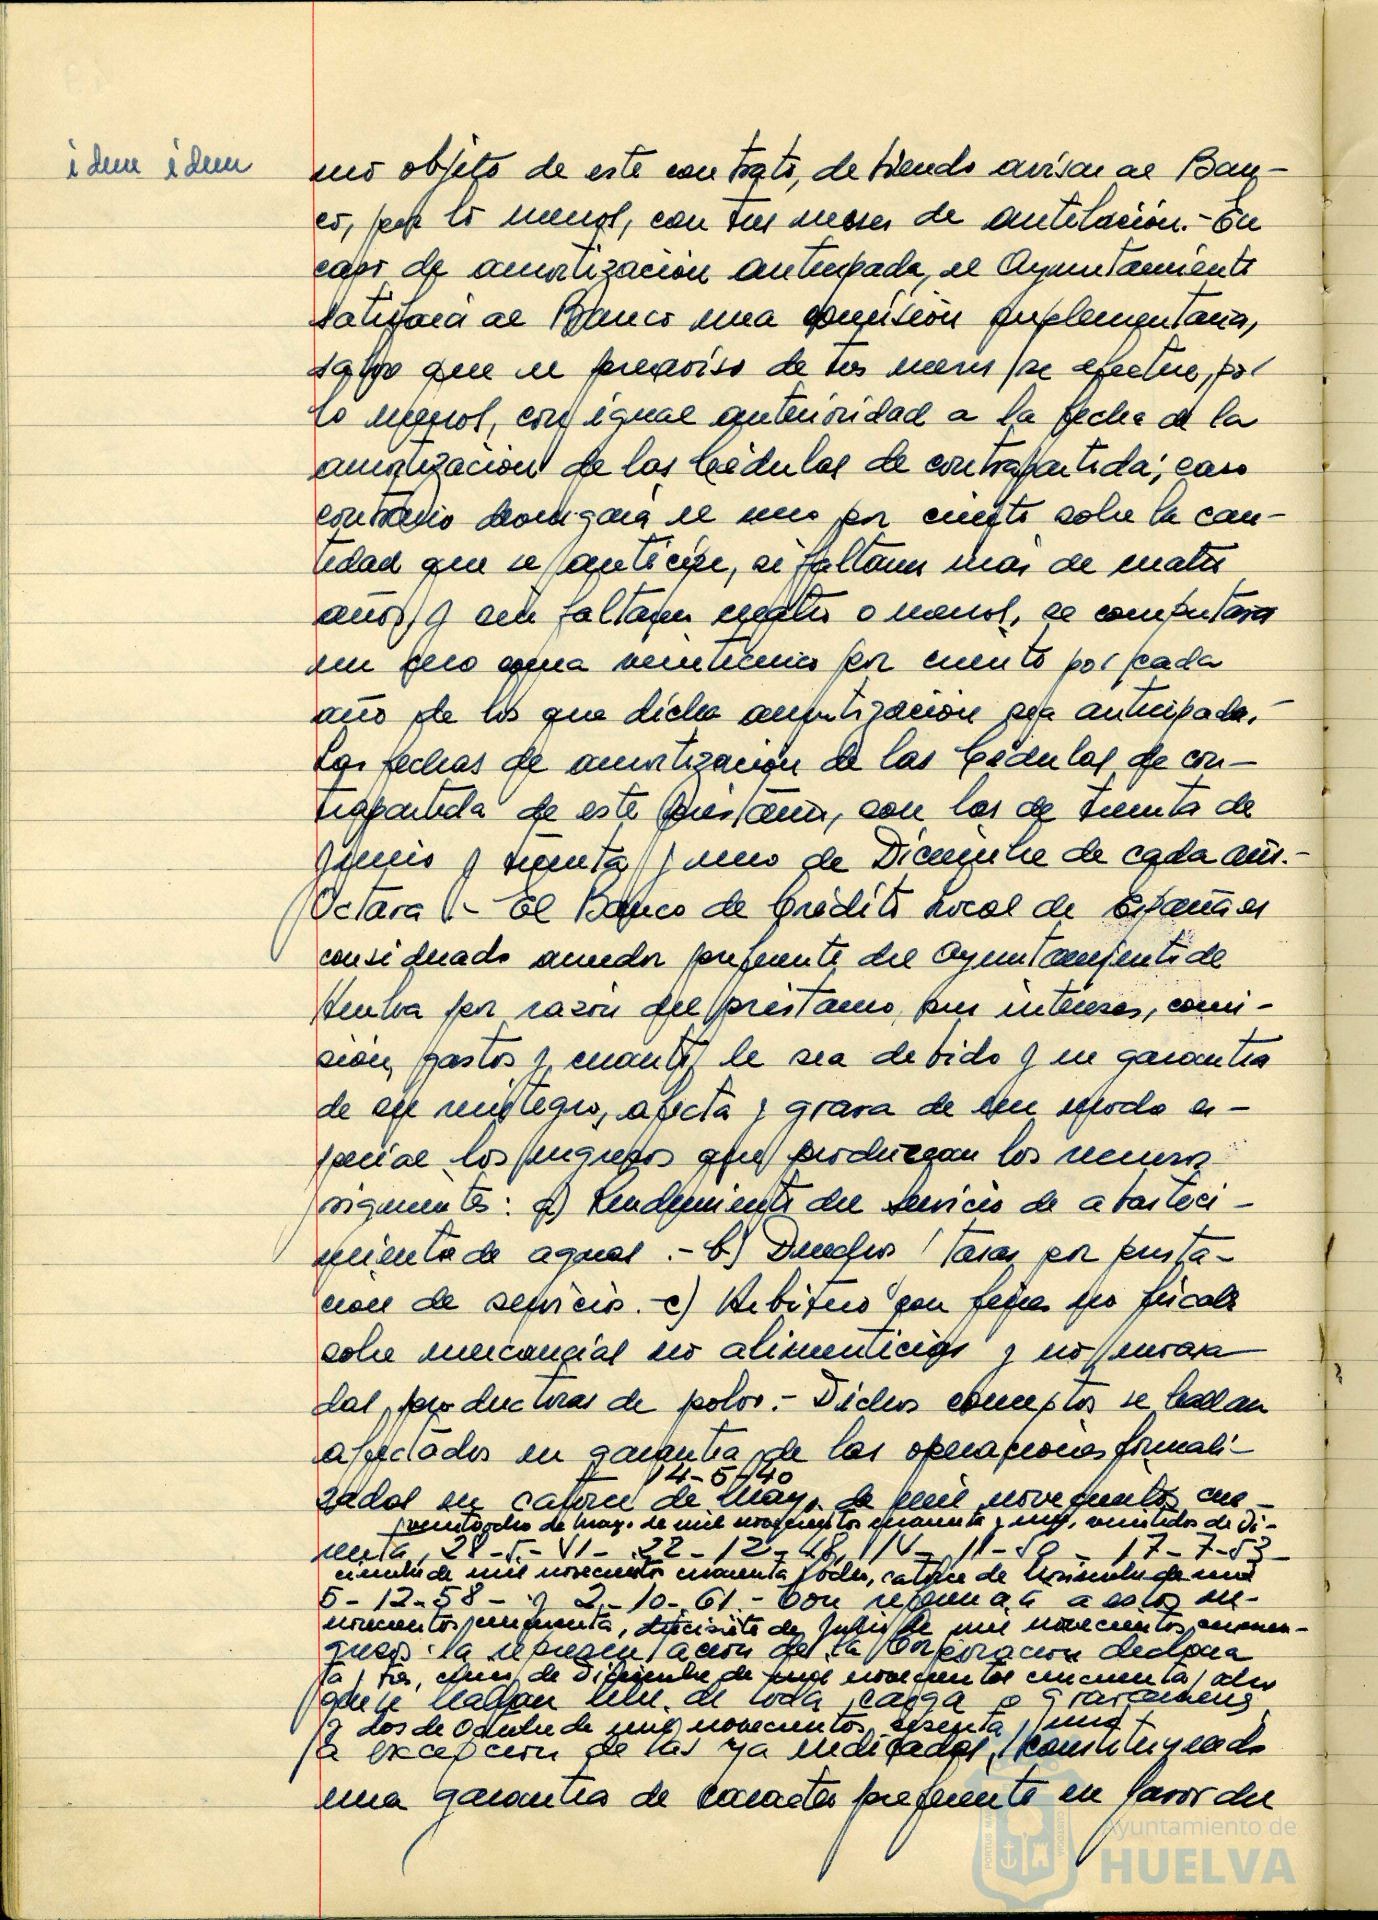 idem idem
mo objeto de este contrato, debiendo avisar al Ban-
co, por lo menos, con tres meses de antelación.- En
caso de amortización anticipada, el Ayuntamiento
satisfará al Banco una comisión suplementaria,
salvo que el preaviso de tres meses se efectue, por
lo menos, con igual anterioridad a la fecha de la
amortización de las Cédulas de contrapartida; caso
contrario devengará el uno por ciento sobre la can-
tidad que se anticipe, si faltaren más de cuatro
años y si faltaren cuatro o menos, se computará
un cero coma veinticinco por ciento por cada
año de los que dicha amortización sea anticipada.-
Las fechas de amortización de las Cédulas de con-
trapartida de este préstamo, son las de treinta de
Junio y treinta y uno de Diciembre de cada año.-
Octava.- El Banco de Crédito Local de España es
considerado acreedor preferente del Ayuntamiento de
Huelva por razón del préstamo, sus intereses, comi-
sión, gastos y cuanto le sea debido y en garantía
de su reintegro, afecta y grava de un modo es-
pecial los ingresos que produzcan los recursos
siguientes: a) Rendimiento del Servicio de abasteci-
miento de aguas.- b) Derechos y tasas por presta-
ción de servicios.- c) Arbitrio con fines no fiscales
sobre mercancías no alimenticias y no envasa
das, productoras de polvo.- Dichos conceptos se hallan
afectados en garantía de las operaciones formali-
14-5-40
zadas en catorce de Mayo de mil novecientos cua-
veintiocho de Mayo de mil novecientos cuarenta y uno, veintidos de Di-
renta, 28-5-41- 22-12-48, 14-11-50 - 17-7-53-
ciembre de mil novecientos cuarenta y ocho, catorce de Noviembre de mil
5-12-58- y 2-10-61.- Con referencia a estos in-
novecientos cincuenta, diecisiete de Julio de mil novecientos cincuen-
gresos la representación de la Corporación declara
ta y tres, cinco de Diciembre de mil novecientos cincuenta y ocho
que se hallan libres de toda carga o gravamen,
y dos de Octubre de mil novecientos sesenta y uno
a excepción de las ya indicadas, constituyendo
una garantía de caracter preferente en favor del
Ayuntamiento de
HUELVA